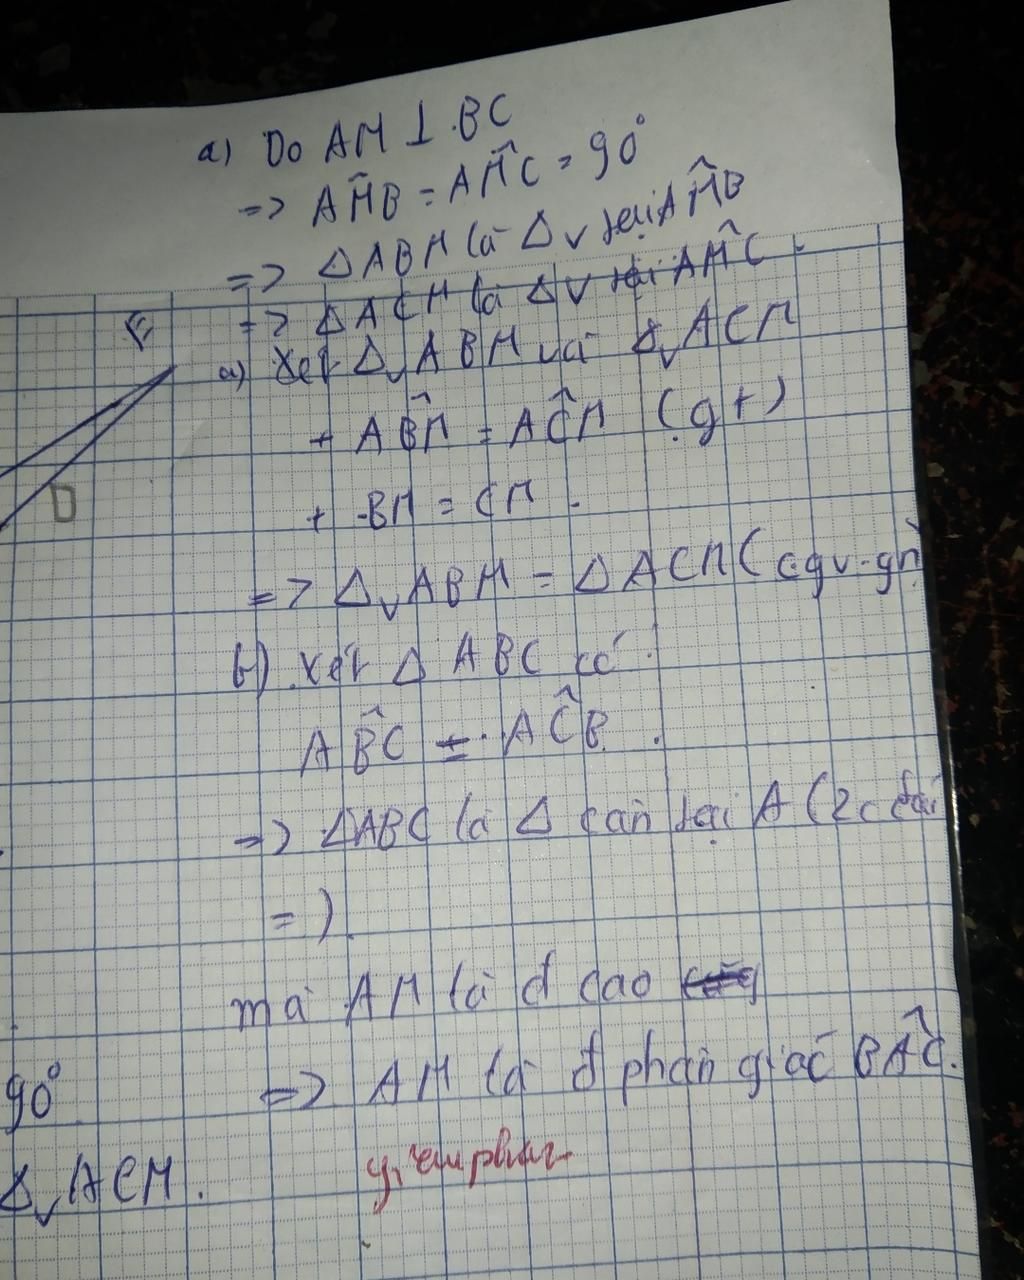 a) Do AM ⊥ BC
=> AM̂B = AM̂C = 90°
=> Δ ABM là Δv tại AM̂B
=> Δ ACM là Δv tại AM̂C
a) Xét Δv ABM và Δv ACM
+ AB̂M = AĈM (gt)
+ BM = CM.
=> Δv ABM = Δ ACM (cgv-gn
b) Xét Δ ABC có:
AB̂C = AĈB.
=> ΔABC là Δ cân tại A (2c đái
=)
mà AM là đ cao
=> AM là đ phân giác BÂC.
E
D
90°
Δv ACM.